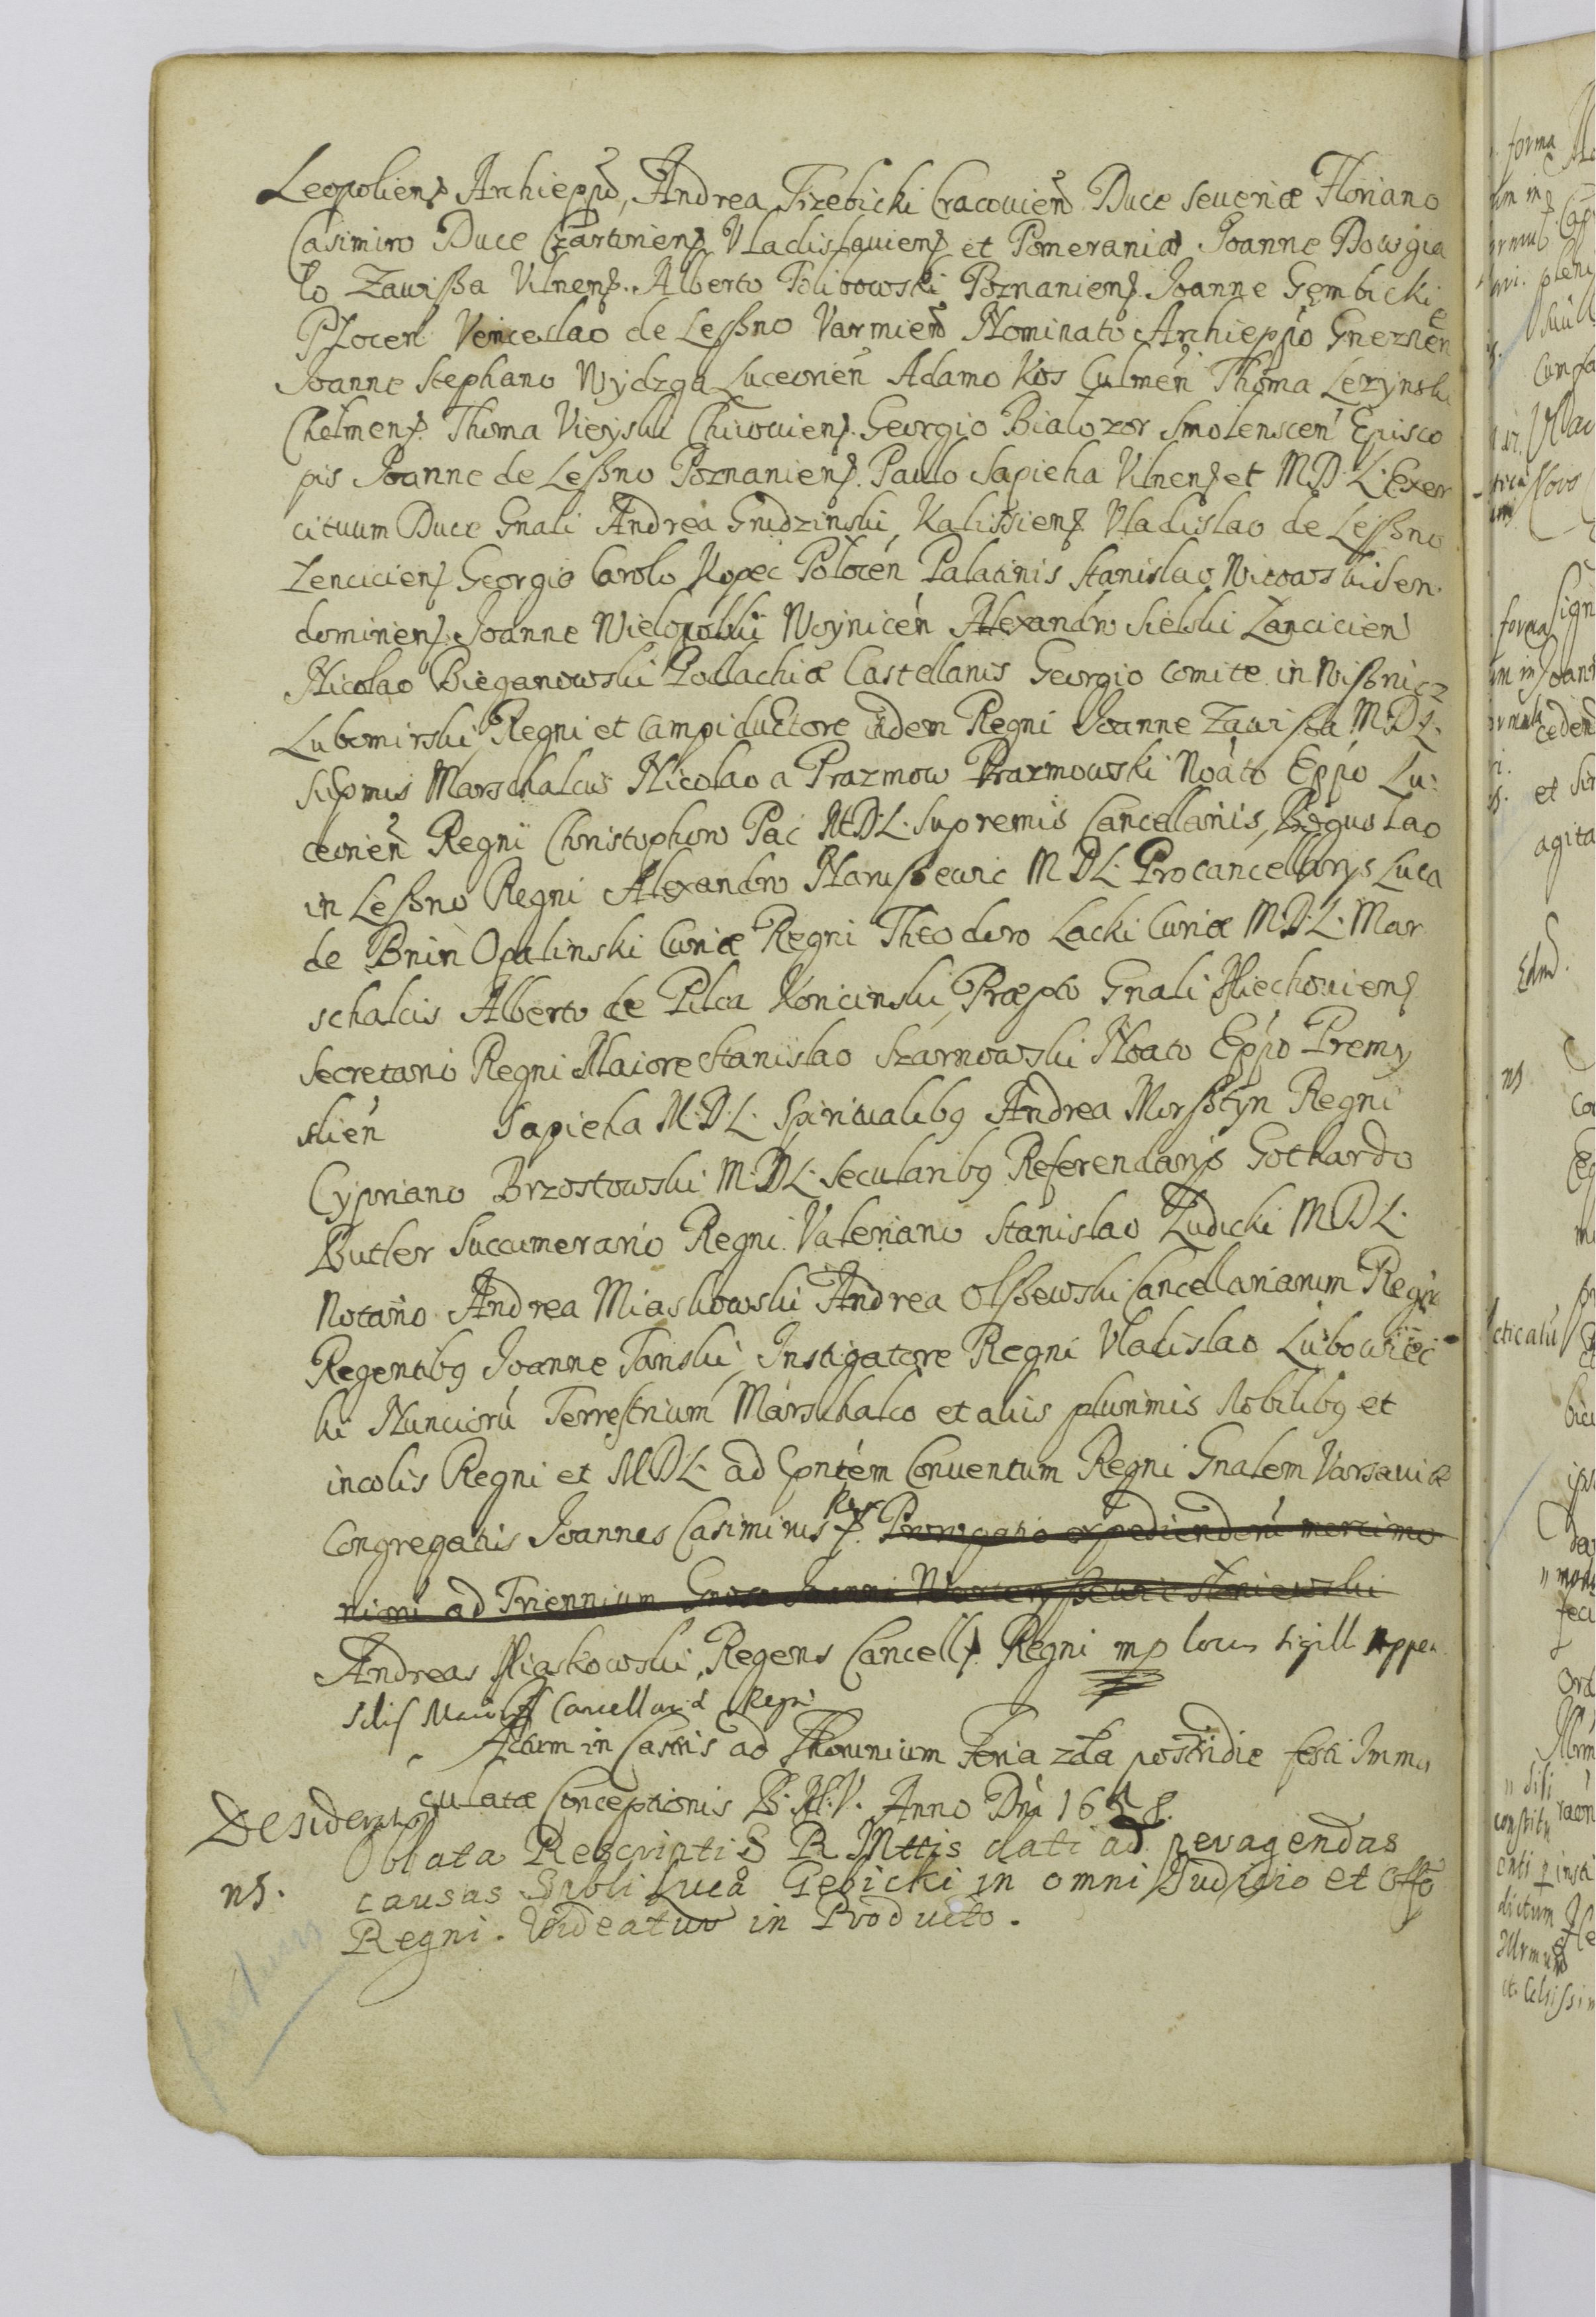 Leopoliens Archieppo, Andrea Trzebicki Cracouien Duce Seueriæ Floriano
Casimiro Duce Czartoriens Vladislauiens et Pomeraniæ Joanne Dowgia
lo Zawißa Vilnens. Alberto Tolibowski Poznaniens. Joanne Gembicki
Plocen Venceslao de Leßno Varmien Nominato Archieppo Gneznen
Joanne Stephano Wydzga Luceorien Adamo Kos Culmen Thoma Lezynski
Chelmens. Thoma Vieyski Chiiouiens. Georgio Bialozor Smolenscen Episco
pis Joanne de Leßno Poznaniens. Paulo Sapieha Vilnens et M.D.L. Exer
cituum Duce Gnali Andrea Grudzinski, Kalissiens Vladislao de Leßno
Lenciciens Georgio Carolo Kopec Polocen Palatinis Stanislao Witowski Sen
dominiens. Joanne Wielopolski Woynicen Alexandro Sielski Lancicien
Nicolao Bieganowski Pollachiæ Castellanis Georgio Comite in Wißnicz
Lubomirski Regni et Campiductore eidem Regni Joanne Zawißa M.D.L.
Supmis Marschalcis Nicolao a Prazmow Prazmowski Noato Eppo Lu:
ceorien Regni Christophoro Pac M.D.L. Supremis Cancellariis, Boguslao
in Leßno Regni Alexandro Narußewic M.D.L. Procancellarys Luca
de Bnin Opalinski Curiæ Regni Theodoro Lacki Curiæ M.D.L. Mar
schalcis Alberto de Pilca Koricinski Præpto Gnali Miechouiens
Secretario Regni Maiore Stanislao Szarnowski Noato Eppo Premy
slien Sapieha M.D.L. Spiritualibq Andrea Morßtyn Regni
Cypriano Brzostowski M.D.L. Secularibq Referendarys Gothardo
Butler Succumerario Regni. Valeriano Stanislao Zudicki M D L.
Notario Andrea Miaskowski Andrea Olßewski Cancellariarum Regni
Regentibq Joanne Tanski Instigatore Regni Vladislao Lubowiec
ki Nunciorū Terrestrium Marschalco et aliis plurimis Nobilibq et
incolis Regni et M.D.L. ad Ppntem Conuentum Regni Gnalem Varsauiæ
Congregatis Joannes Casimirus Rex Prorogatio expediendorū mercimo
niorū ad Triennium Groso Joanni
Andreas Miaskowski, Regens Cancell. Regni mp locus sigilli appen
silis Maioris Cancellariæ Regni
Actum in Castris ad Thorunium Feria 2da postridie festi Imma
culatæ Conceptionis B. M. V. Anno Dni 1658.
Desiderat
Oblata Rescripti S R Mttis dati ad peragendas
ns.
causas Snbli Luca Gebicki in omni Judicio et Offo
Regni. Videatur in Producto.